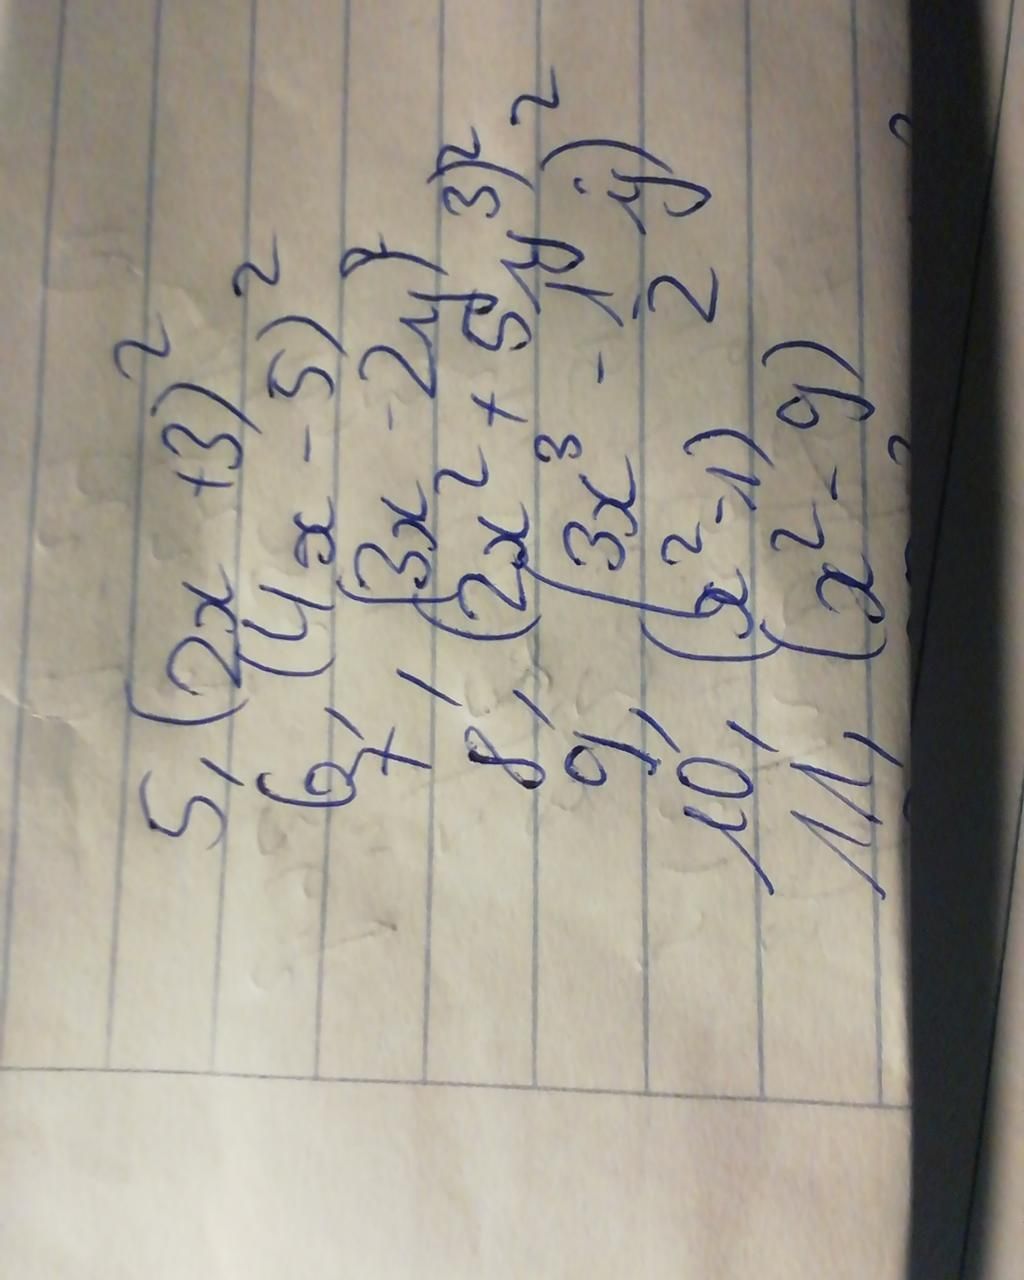 5, (2x +3)²
6, (4x - 5)²
7, (3x - 2y)²
8, (2x² + 5y³)²
9, (3x³ - 1/2 y)²
10, (x² - 1)
11, (x² - 9)